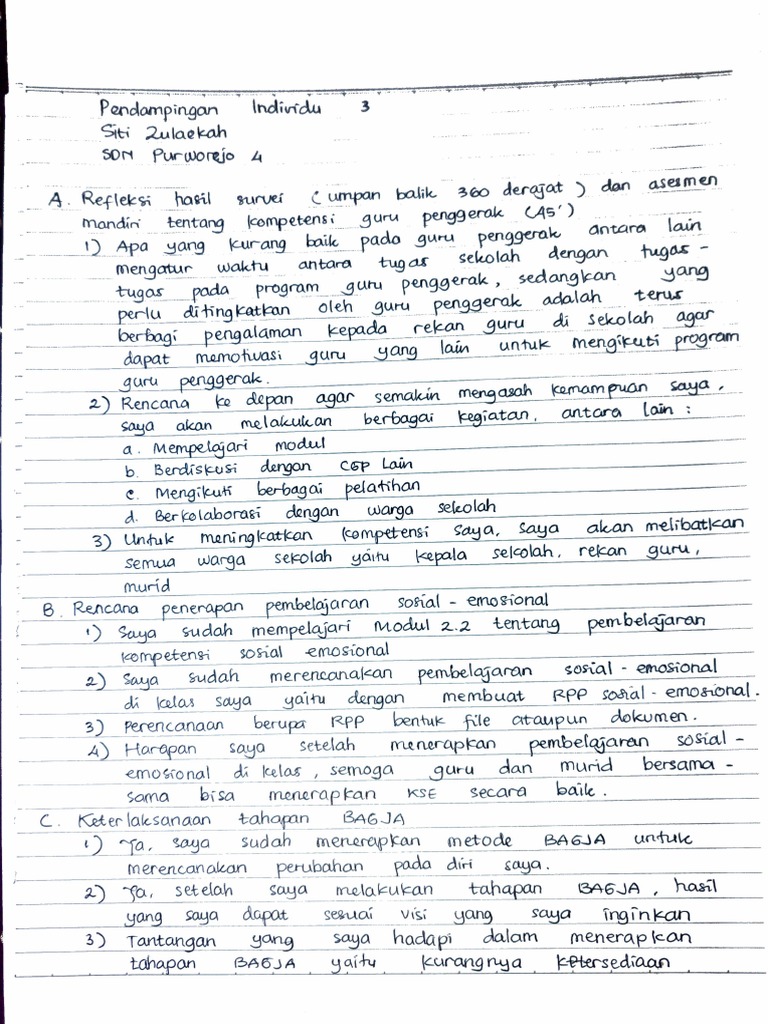 Pendampingan Individu 3
Siti Zulaekah
SDN Purworejo 4
A. Refleksi hasil survei (umpan balik 360 derajat) dan asesmen
mandiri tentang kompetensi guru penggerak (45')
1) Apa yang kurang baik pada guru penggerak antara lain
mengatur waktu antara tugas sekolah dengan tugas-
tugas pada program guru penggerak, sedangkan yang
perlu ditingkatkan oleh guru penggerak adalah terus
berbagi pengalaman kepada rekan guru di sekolah agar
dapat memotivasi guru yang lain untuk mengikuti program
guru penggerak.
2) Rencana ke depan agar semakin mengasah kemampuan saya,
saya akan melakukan berbagai kegiatan, antara lain :
a. Mempelajari modul
b. Berdiskusi dengan CGP Lain
c. Mengikuti berbagai pelatihan
d. Berkolaborasi dengan warga sekolah
3) Untuk meningkatkan kompetensi saya, saya akan melibatkan
semua warga sekolah yaitu kepala sekolah, rekan guru,
murid
B. Rencana penerapan pembelajaran sosial - emosional
1) Saya sudah mempelajari Modul 2.2 tentang pembelajaran
kompetensi sosial emosional
2) Saya sudah merencanakan pembelajaran sosial - emosional
di kelas saya yaitu dengan membuat RPP sosial - emosional.
3) Perencanaan berupa RPP bentuk file ataupun dokumen.
4) Harapan saya setelah menerapkan pembelajaran sosial -
emosional di kelas, semoga guru dan murid bersama -
sama bisa menerapkan KSE secara baik.
C. Keterlaksanaan tahapan BAGJA
1) Ya, saya sudah menerapkan metode BAGJA untuk
merencanakan perubahan pada diri saya.
2) Ya, setelah saya melakukan tahapan BAGJA, hasil
yang saya dapat sesuai visi yang saya inginkan
3) Tantangan yang saya hadapi dalam menerapkan
tahapan BAGJA yaitu kurangnya ketersediaan